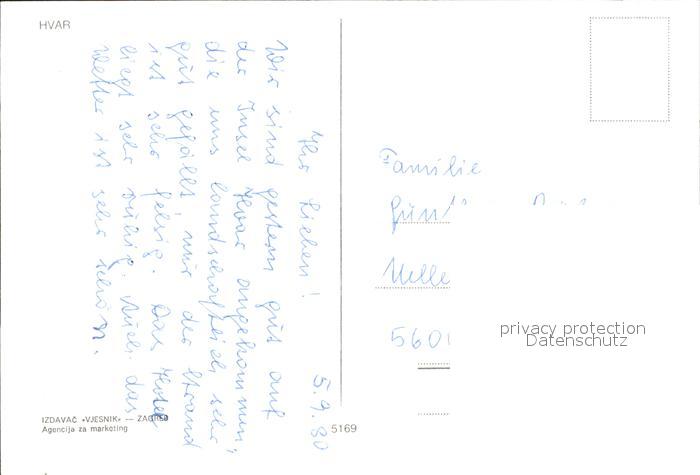 HVAR
5.9.80
Ihr Lieben!
Wir sind gestern gut auf
der Insel Hvar angekommen,
die uns landschaftlich sehr
gut gefällt, nur der Strand
ist sehr felsig. Das Hotel
liegt sehr ruhig. Auch das
Wetter ist sehr schön.
IZDAVAČ »VJESNIK« — ZAGREB
Agencija za marketing
5169
Familie
Gün
Helle
560
privacy protection
Datenschutz